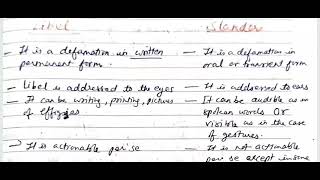 Libel
Slander
- It is a defamation in written
permanent form.
- It is a defamation in
oral or transient form
- Libel is addressed to the eyes
- It is addressed to ears
- It can be writing, printing, pictures
of effigies
- It can be audible as in
spoken words or
visible as in the case
of gestures.
- It is actionable per se
- It is not actionable
per se except in some